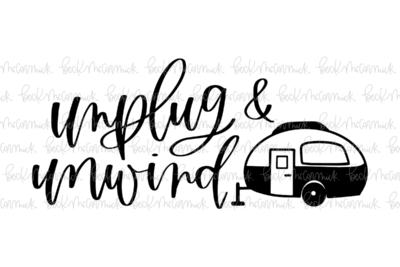 unplug &
unwind